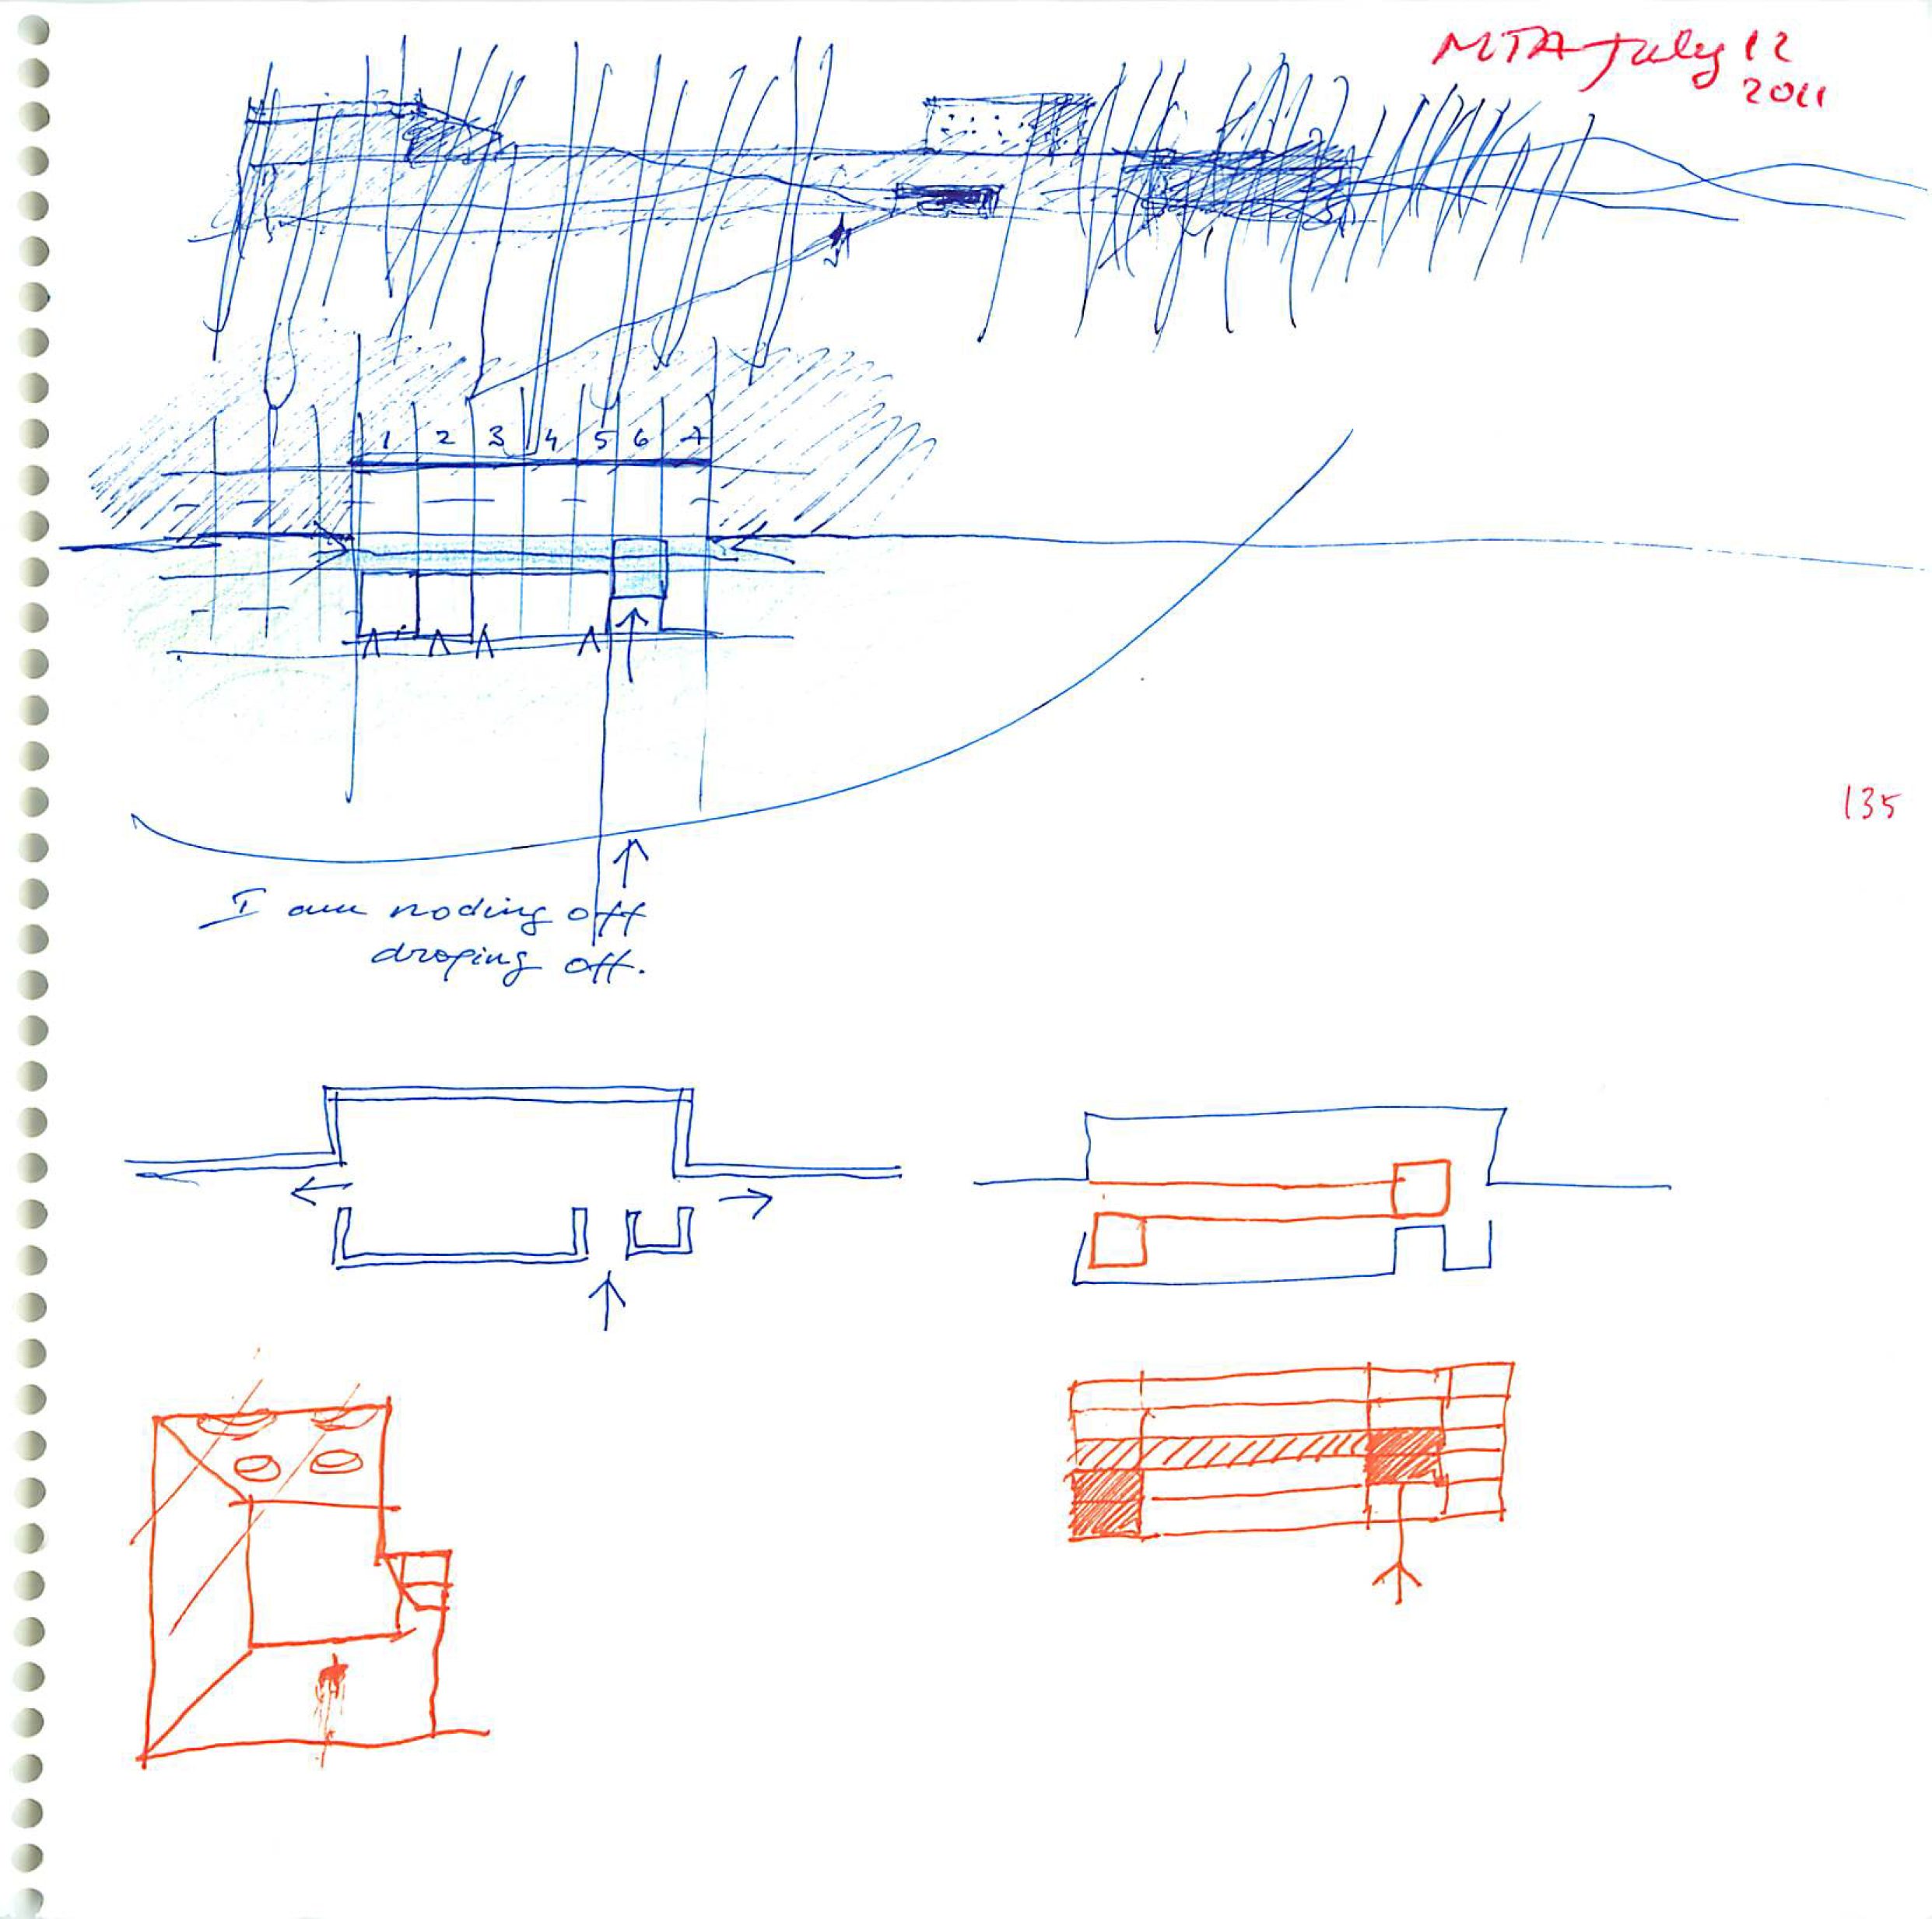 MTA July 12
2011
1 2 3 4 5 6 7
135
I am noding off
droping off.